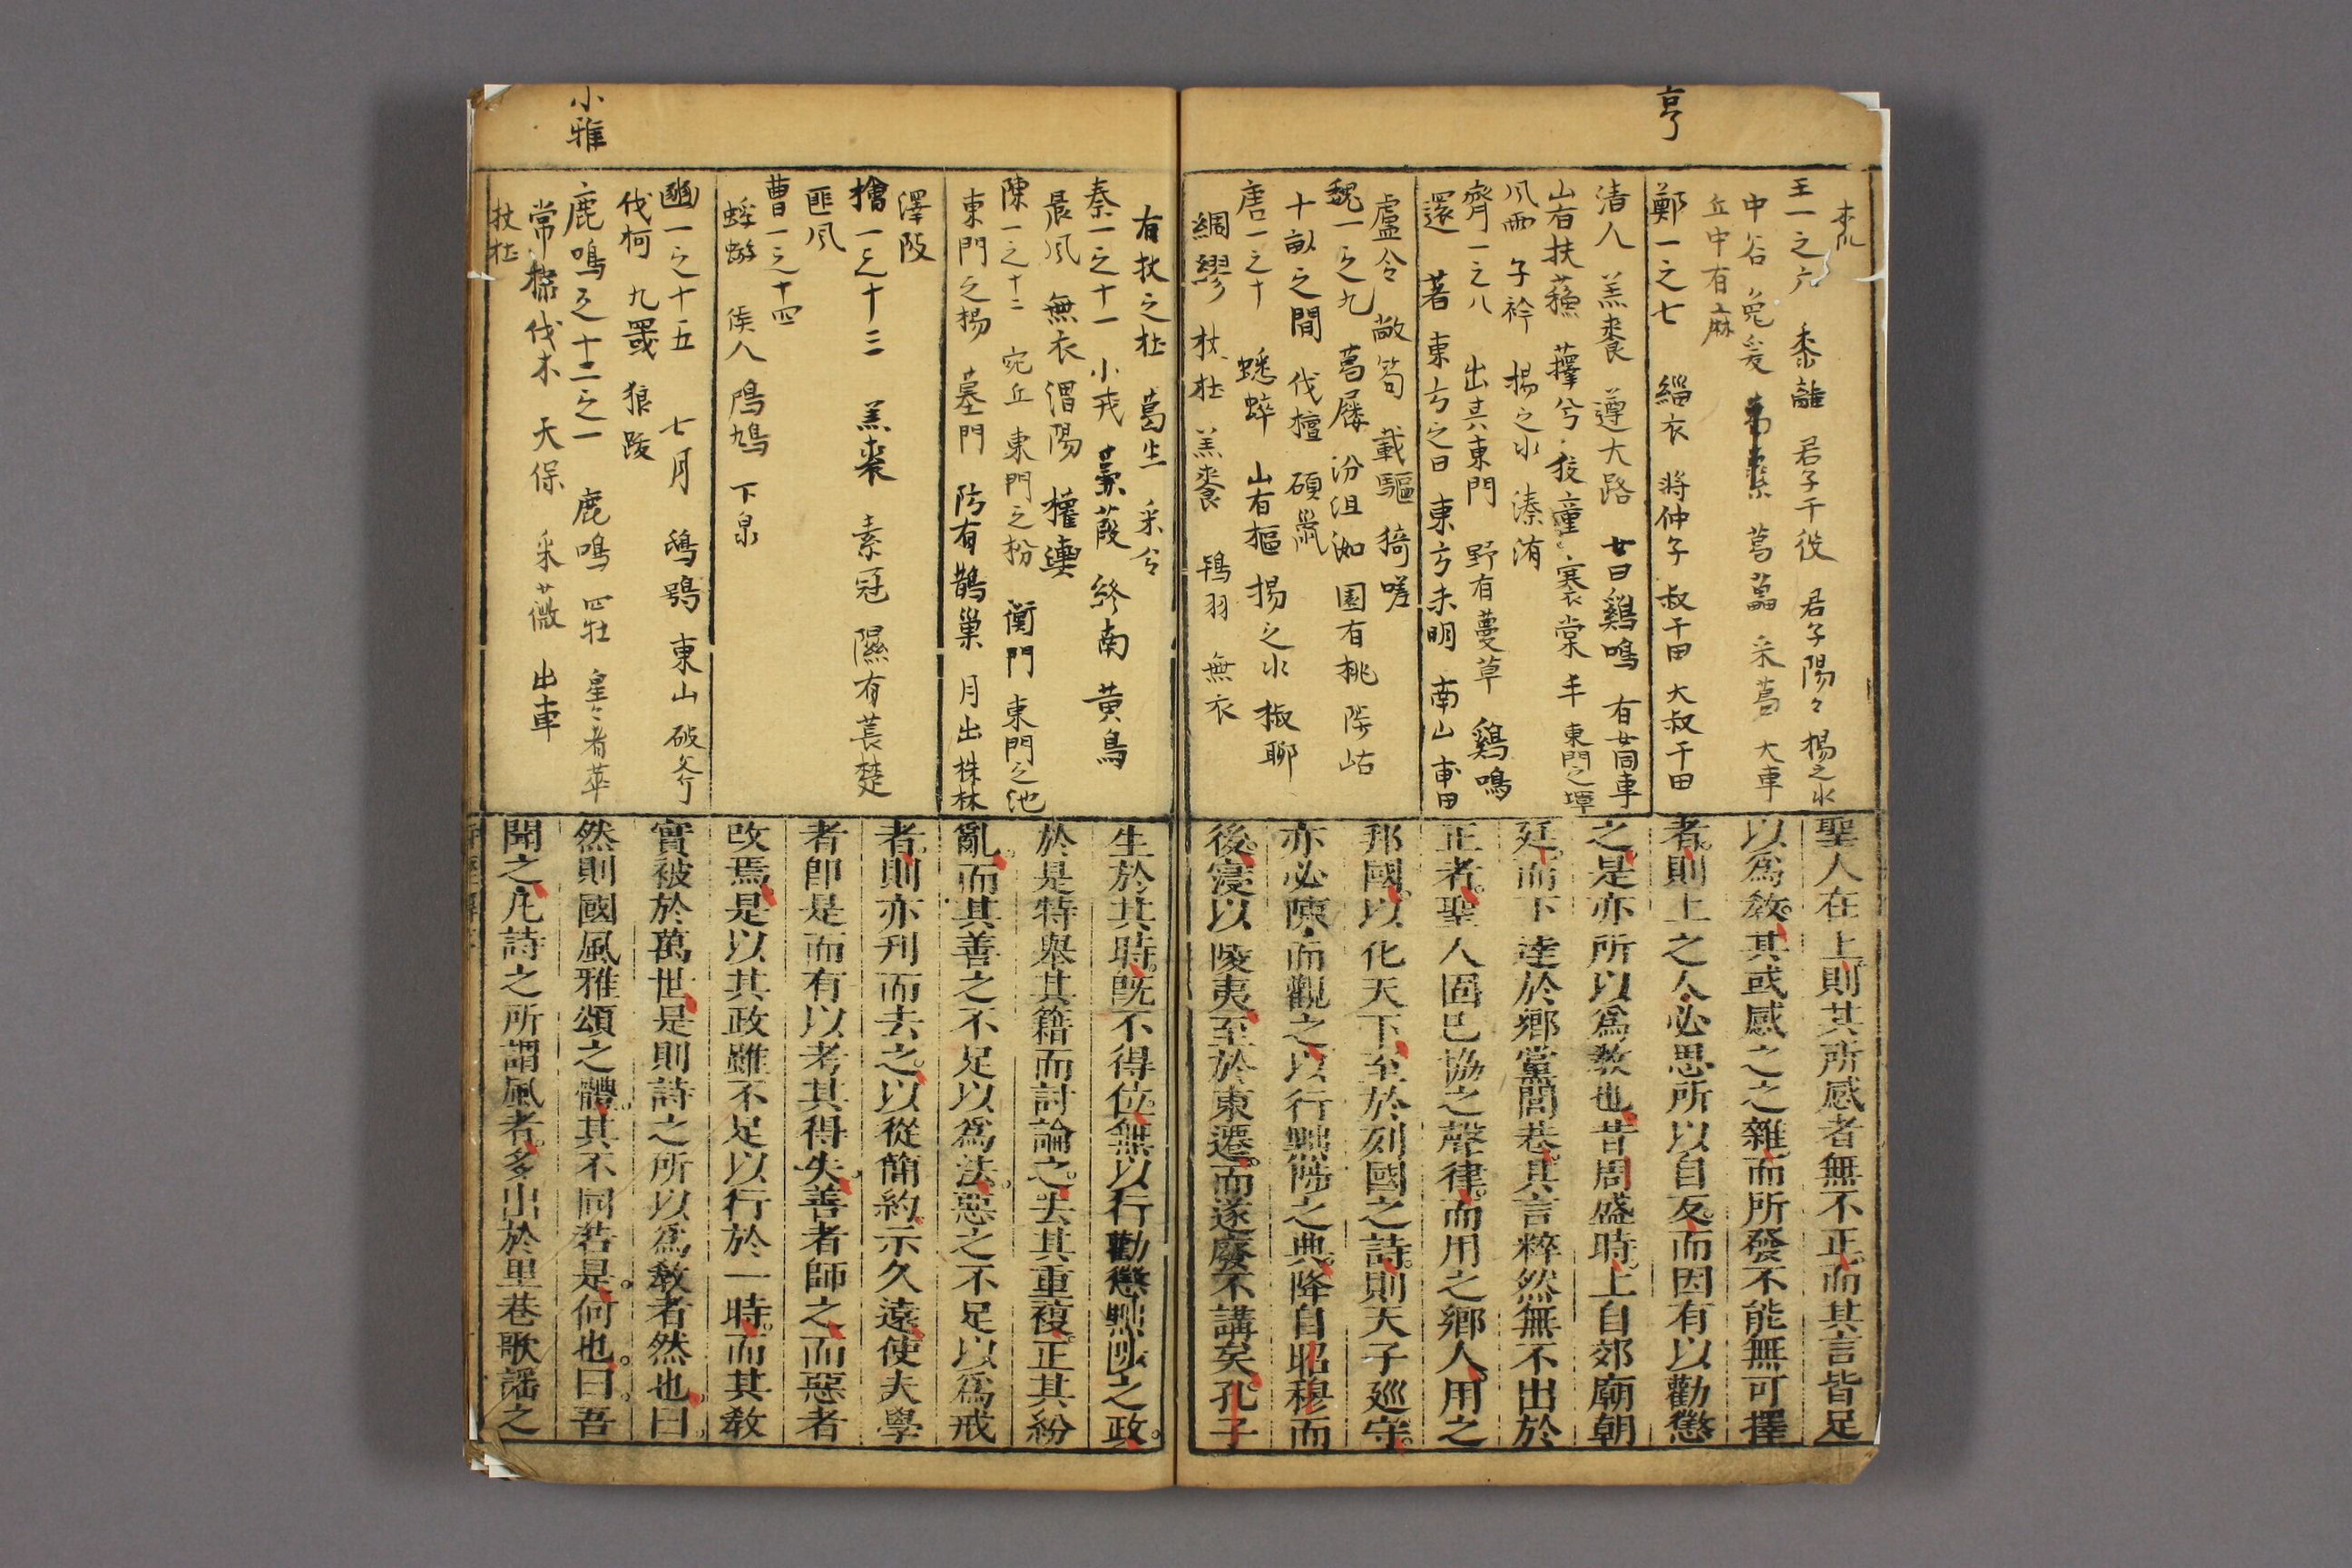 亨
王一之六 黍離 君子于役 君子陽々 揚之水
中谷 兔爰 葛藟 采葛 大車
丘中有麻
鄭一之七 緇衣 將仲子 叔于田 大叔于田
清人 羔裘 遵大路 女曰雞鳴 有女同車
山有扶蘇 蘀兮 狡童 褰裳 丰 東門之墠
風雨 子衿 揚之水 溱洧
齊一之八 出其東門 野有蔓草 鷄鳴
還 著 東方之日 東方未明 南山 甫田
盧令 敝笱 載驅 猗嗟
魏一之九 葛屨 汾沮洳 園有桃 陟岵
十畝之間 伐檀 碩鼠
唐一之十 蟋蟀 山有樞 揚之水 椒聊
綢繆 杕杜 羔裘 鴇羽 無衣
聖人在上則其所感者無不正而其言皆足
以爲教其或感之之雜而所發不能無可擇
者則上之人必思所以自反而因有以勸懲
之是亦所以爲教也昔周盛時上自郊廟朝
廷而下達於鄉黨閭巷其言粹然無不出於
正者聖人固已協之聲律而用之鄉人用之
邦國以化天下至於列國之詩則天子巡守
亦必陳而觀之以行黜陟之典降自昭穆而
後寖以陵夷至於東遷而遂廢不講矣孔子
有杕之杜 葛生 采苓
秦一之十一 小戎 蒹葭 終南 黃鳥
晨風 無衣 渭陽 權輿
陳一之十二 宛丘 東門之枌 衡門 東門之池
東門之楊 墓門 防有鵲巢 月出 株林
澤陂
檜一之十三 羔裘 素冠 隰有萇楚
匪風
曹一之十四
蜉蝣 候人 鳲鳩 下泉
豳一之十五 七月 鴟鴞 東山 破斧
伐柯 九罭 狼跋
小雅
鹿鳴之什二之一 鹿鳴 四牡 皇々者華
常棣 伐木 天保 采薇 出車
杕杜
生於其時既不得位無以行勸懲黜陟之政
於是特舉其籍而討論之去其重複正其紛
亂而其善之不足以爲法惡之不足以爲戒
者則亦刊而去之以從簡約示久遠使夫學
者即是而有以考其得失善者師之而惡者
改焉是以其政雖不足以行於一時而其教
實被於萬世是則詩之所以爲教者然也曰
然則國風雅頌之體其不同若是何也曰吾
聞之凡詩之所謂風者多出於里巷歌謠之